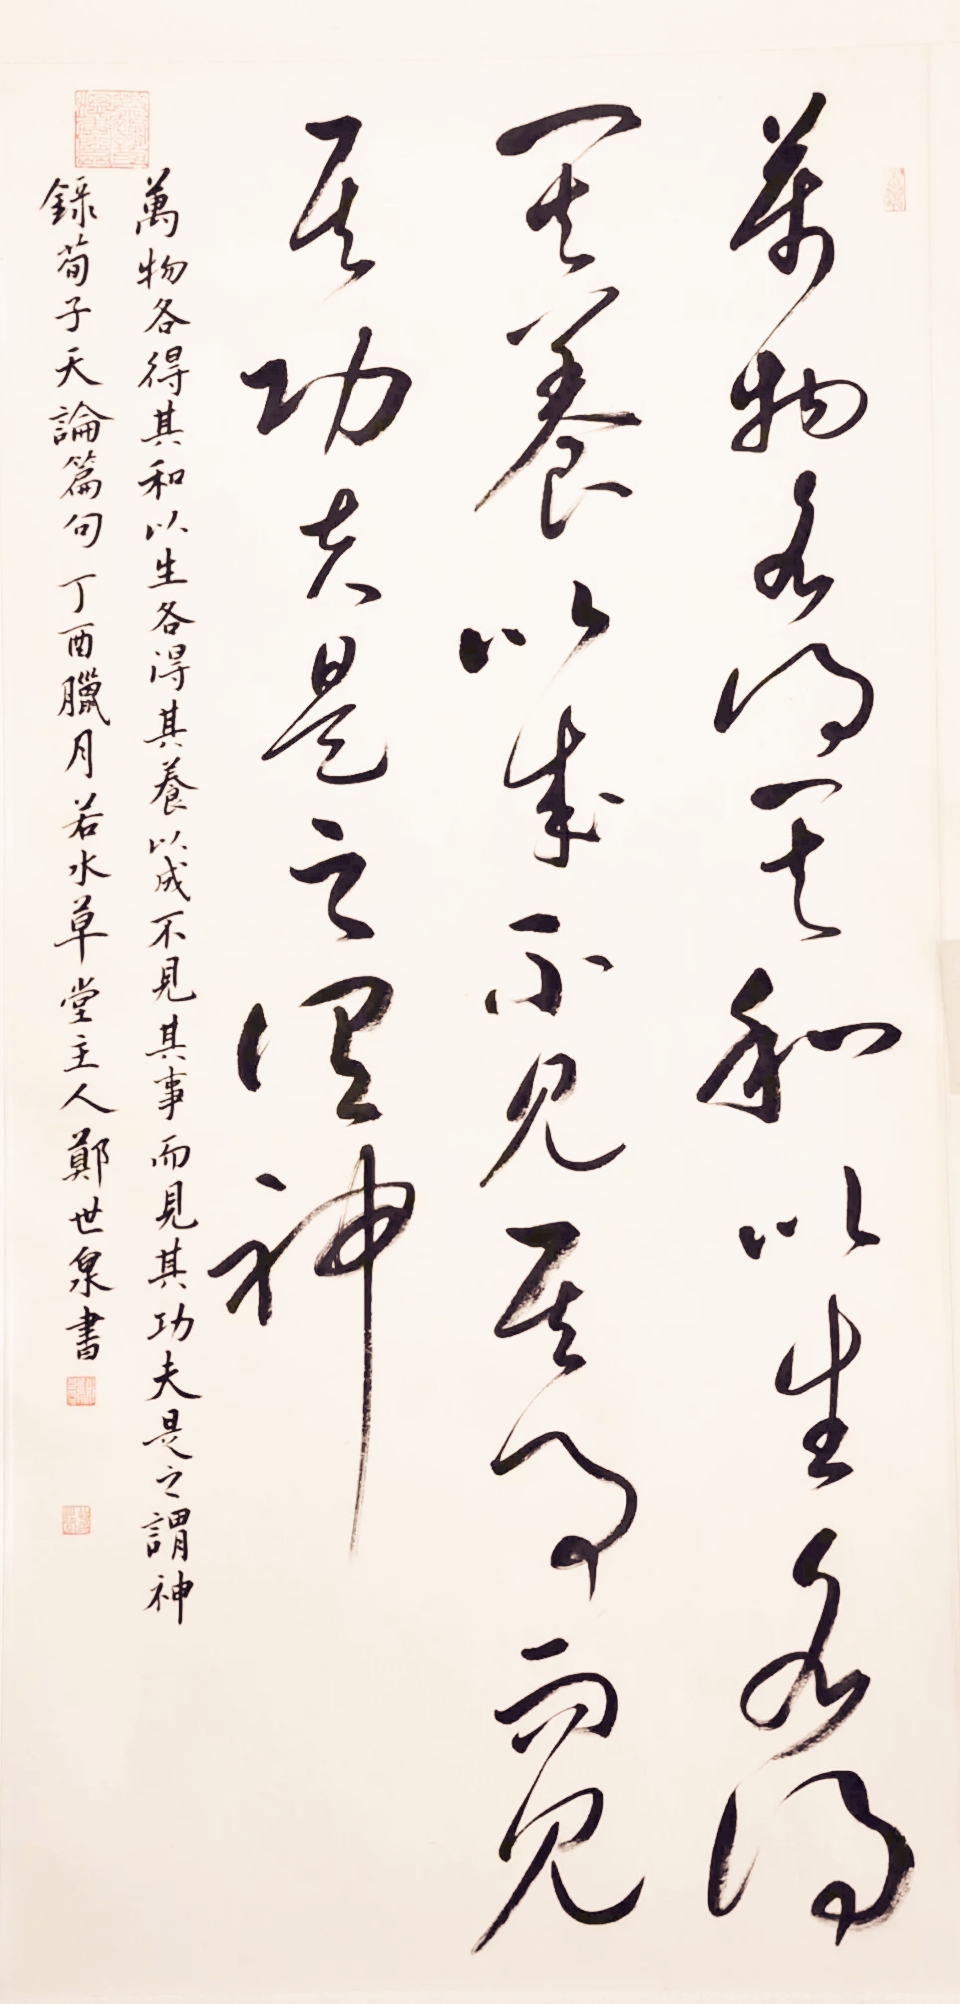 萬物各得其和以生各得
其養以成不見其事而見
其功夫是之謂神
萬物各得其和以生各得其養以成不見其事而見其功夫是之謂神
錄荀子天論篇句丁酉臘月若水草堂主人鄭世泉書